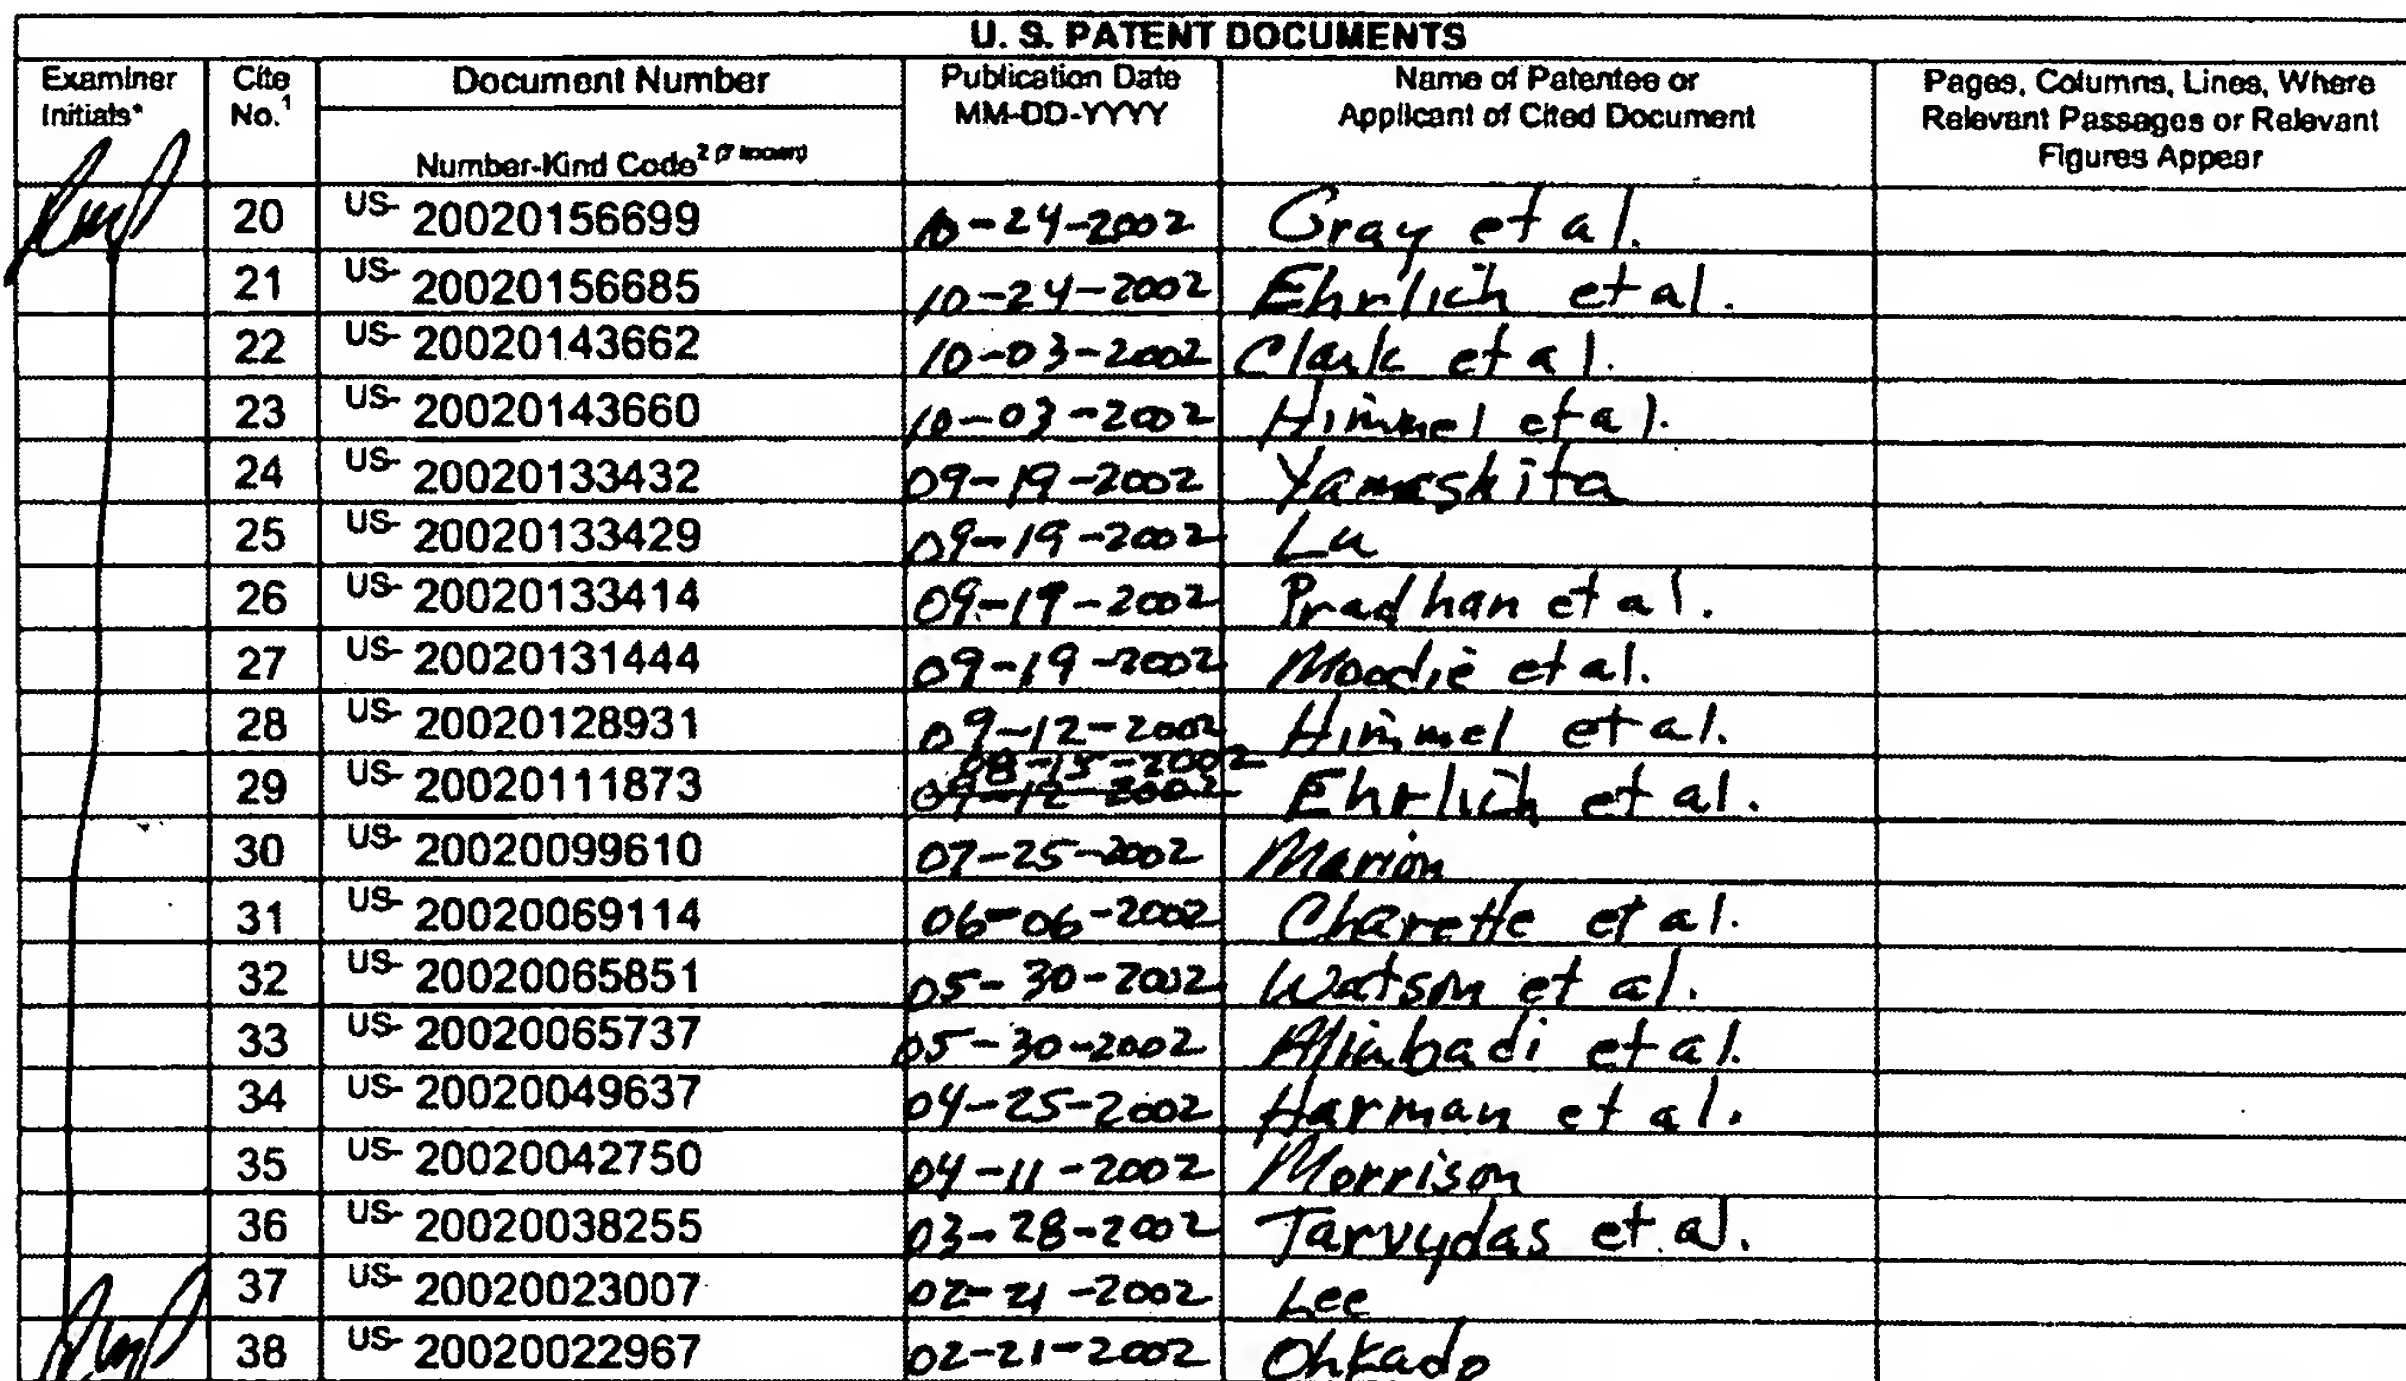 U. S. PATENT DOCUMENTS
Examiner Initials* Cite No.1 Document Number Publication Date MM-DD-YYYY Name of Patentee or Applicant of Cited Document Pages, Columns, Lines, Where Relevant Passages or Relevant Figures Appear
Number-Kind Code2 (if known)
20 US- 20020156699 10-24-2002 Gray et al.
21 US- 20020156685 10-24-2002 Ehrlich et al.
22 US- 20020143662 10-03-2002 Clark et al.
23 US- 20020143660 10-03-2002 Himmel et al.
24 US- 20020133432 09-19-2002 Yamashita
25 US- 20020133429 09-19-2002 Lu
26 US- 20020133414 09-19-2002 Pradhan et al.
27 US- 20020131444 09-19-2002 Moodie et al.
28 US- 20020128931 09-12-2002 Himmel et al.
08-15-2002
29 US- 20020111873 09-12-2002 Ehrlich et al.
30 US- 20020099610 07-25-2002 Marion
31 US- 20020069114 06-06-2002 Charette et al.
32 US- 20020065851 05-30-2002 Watson et al.
33 US- 20020065737 05-30-2002 Aliabadi et al.
34 US- 20020049637 04-25-2002 Harman et al.
35 US- 20020042750 04-11-2002 Morrison
36 US- 20020038255 03-28-2002 Tarvydas et al.
37 US- 20020023007 02-21-2002 Lee
38 US- 20020022967 02-21-2002 Ohkado